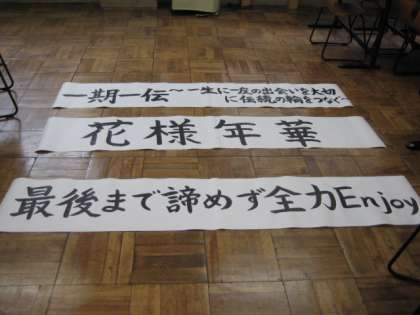 一期一伝～一生に一度の出会いを大切
に伝統の輪をつなぐ～
花様年華
最後まで諦めず全力Enjoy